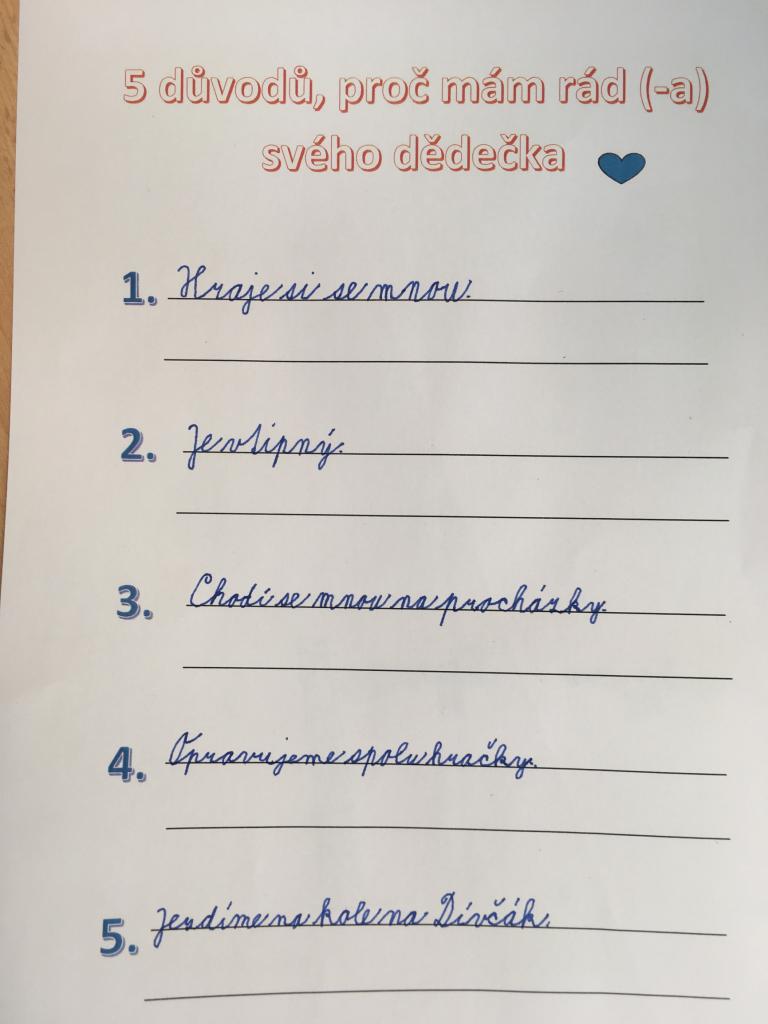 5 důvodů, proč mám rád (-a)
svého dědečka
1. Hraje si se mnou.
2. Je vtipný.
3. Chodí se mnou na procházky.
4. Opravujeme spolu hračky.
5. Jezdíme na kole na Dívčák.